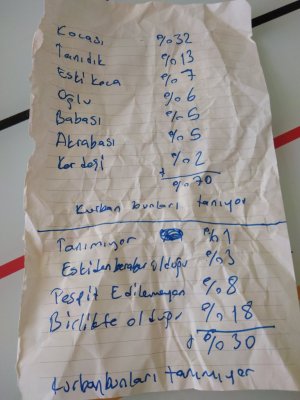 Kocası %32
Tanıdık %13
Eski koca %7
Oğlu %6
Babası %5
Akrabası %5
Kardeşi %2
+
%70
Kurban bunları tanıyor
Tanımıyor %1
Eskiden beraber olduğu %3
Tespit Edilemeyen %8
Birlikte olduğu %18
+ %30
Kurban bunları tanımıyor